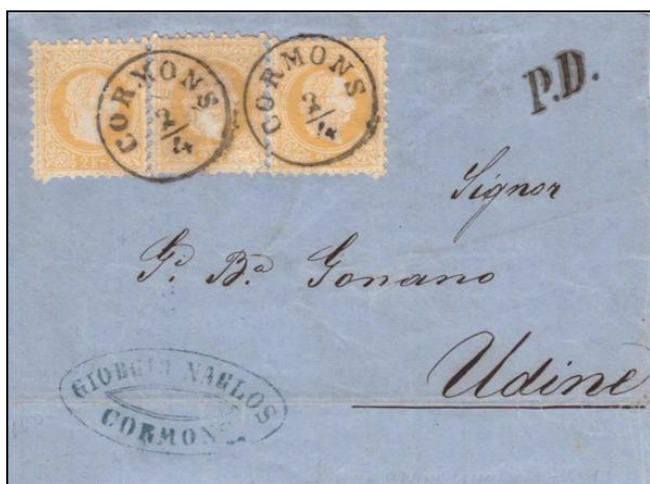 CORMONS
24/4
CORMONS
24/4
P.D.
Signor
G. Ba. Gonano
Udine
GIORGIO NAGLOS
CORMONS